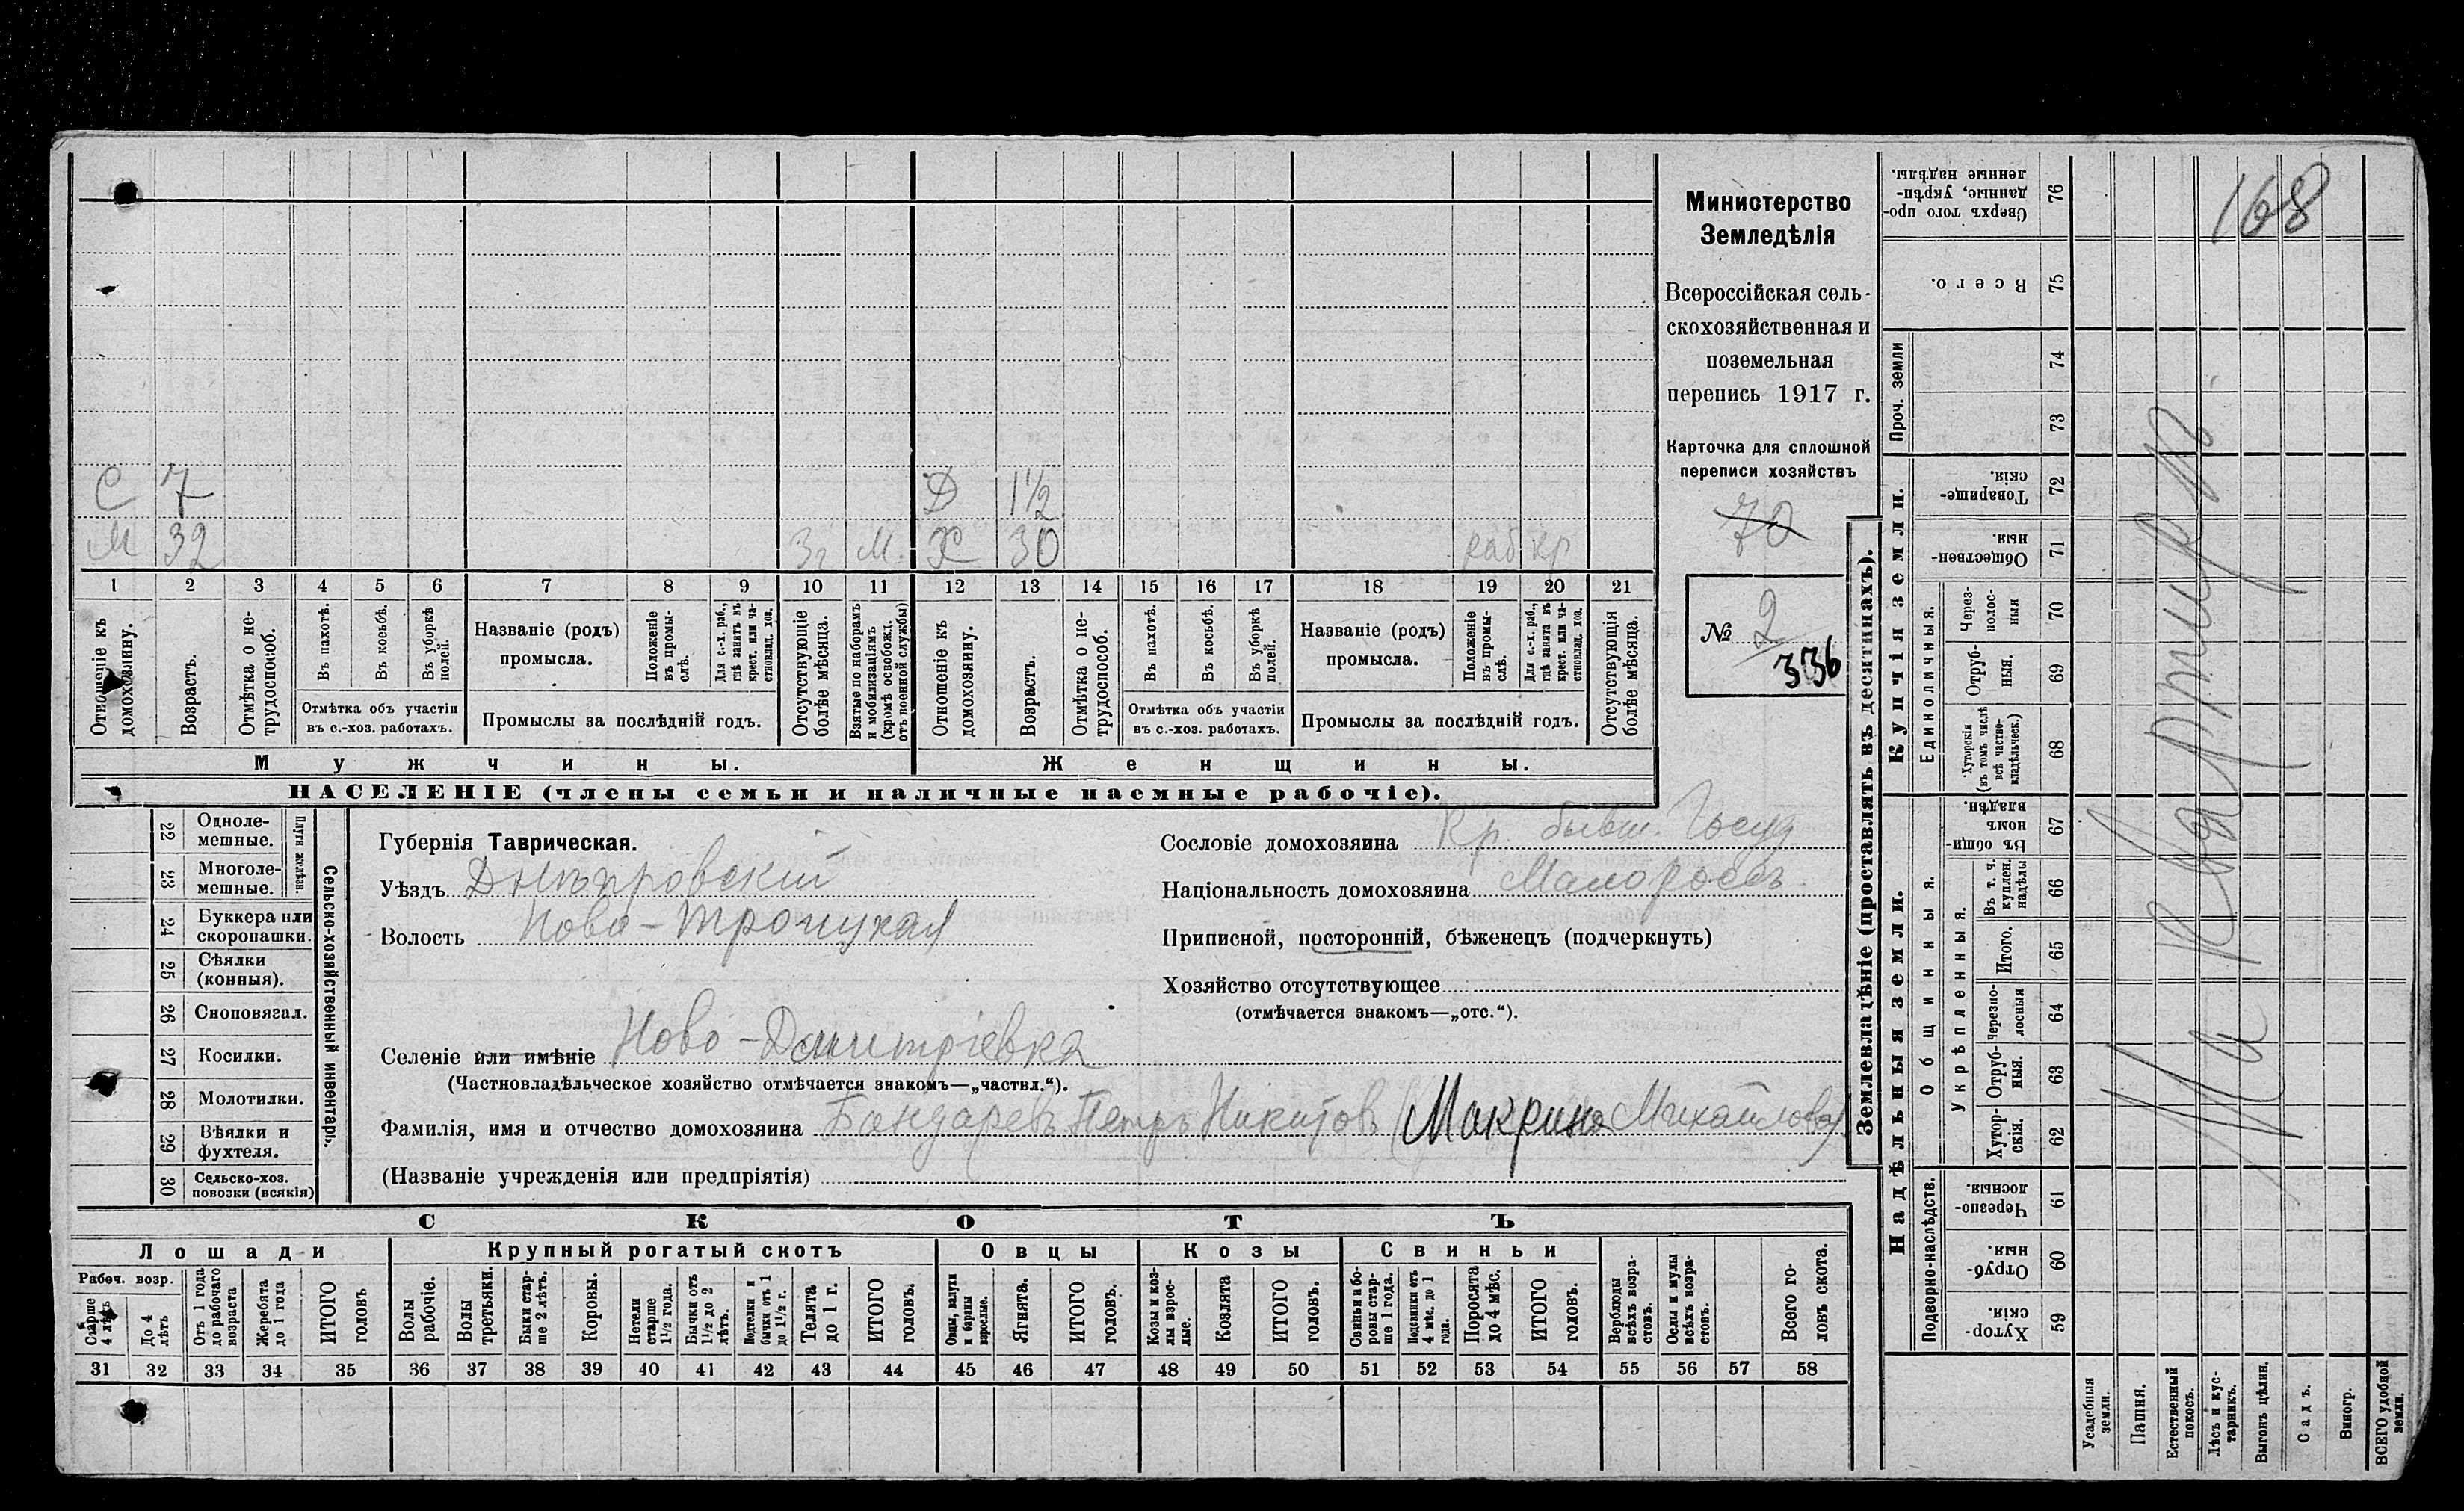 С 7 Д 1½
М 32 3 г М. Х 30 раб кр
1 2 3 4 5 6 7 8 9 10 11 12 13 14 15 16 17 18 19 20 21
Отношеніе къ домохозяину.
Возрастъ.
Отмѣтка о нетрудоспособ.
Въ пахотѣ.
Въ косьбѣ.
Въ уборкѣ полей.
Отмѣтка объ участіи въ с.-хоз. работахъ.
Названіе (родъ) промысла.
Положеніе въ промыслѣ.
Для с.-х. раб., гдѣ занятъ въ крест. или частновлад. хоз.
Промыслы за послѣдній годъ.
Отсутствующіе болѣе мѣсяца.
Взятые по наборамъ и мобилизаціямъ (кромѣ освобожд. отъ военной службы)
Отношеніе къ домохозяину.
Возрастъ.
Отмѣтка о нетрудоспособ.
Въ пахотѣ.
Въ косьбѣ.
Въ уборкѣ полей.
Отмѣтка объ участіи въ с.-хоз. работахъ.
Названіе (родъ) промысла.
Положеніе въ промыслѣ.
Для с.-х. раб., гдѣ занята въ крест. или частновлад. хоз.
Промыслы за послѣдній годъ.
Отсутствующія болѣе мѣсяца.
Мужчины. Женщины.
НАСЕЛЕНІЕ (члены семьи и наличные наемные рабочіе).
Министерство
Земледѣлія
Всероссійская сель-
скохозяйственная и
поземельная
перепись 1917 г.
Карточка для сплошной
переписи хозяйствъ
70
№ 2
336
22 Однолемешные.
23 Многолемешные.
Плуги желѣзн.
24 Буккера или скоропашки.
25 Сѣялки (конныя).
26 Сноповязал.
27 Косилки.
28 Молотилки.
29 Вѣялки и фухтеля.
30 Сельско-хоз. повозки (всякія)
Сельско-хозяйственный инвентарь.
Губернія Таврическая.
Уѣздъ Днѣпровскій
Волость Ново-Троицкая
Селеніе или имѣніе Ново-Дмитріевка
(Частновладѣльческое хозяйство отмѣчается знакомъ—„частвл.“).
Фамилія, имя и отчество домохозяина Бондаревъ Петръ Никитовъ (Макрина Михайлова)
(Названіе учрежденія или предпріятія)
Сословіе домохозяина Кр. бывш. Госуд
Національность домохозяина Малороссъ
Приписной, посторонній, бѣженецъ (подчеркнуть)
Хозяйство отсутствующее
(отмѣчается знакомъ—„отс.“).
СКОТЪ
Лошади Крупный рогатый скотъ Овцы Козы Свиньи
Рабоч. возр.
Старше 4 лѣтъ
До 4 лѣтъ
Отъ 1 года до рабочаго возраста
Жеребята до 1 года
ИТОГО головъ
Волы рабочіе.
Волы третьяки.
Быки старше 2 лѣтъ.
Коровы.
Нетели старше 1½ года.
Бычки отъ 1½ до 2 лѣтъ.
Подтелки и бычки отъ 1 до 1½ г.
Телята до 1 г.
ИТОГО головъ.
Овцы, валухи и бараны взрослые.
Ягнята.
ИТОГО головъ.
Козы и козлы взрослые.
Козлята
ИТОГО головъ.
Свиньи и боровы старше 1 года.
Подсвинки отъ 4 мѣс. до 1 года.
Поросята до 4 мѣс.
ИТОГО головъ.
Верблюды всѣхъ возрастовъ.
Ослы и мулы всѣхъ возрастовъ.
Всего головъ скота.
31 32 33 34 35 36 37 38 39 40 41 42 43 44 45 46 47 48 49 50 51 52 53 54 55 56 57 58
Землевладѣніе (проставлять въ десятинахъ).
Надѣльныя земли. Купчія земли. Проч. земли
Подворно-наслѣдств. Общинныя. Единоличныя.
Укрѣпленныя.
Хуторскія. 59
Отрубныя. 60
Черезполосныя. 61
Хуторскія. 62
Отрубныя. 63
Черезполосныя 64
Итого. 65
Въ т. ч. куплен. надѣлы 66
Въ общинномъ владѣн. 67
Хуторскія (въ томъ числѣ всѣ частновладѣльческ.) 68
Отрубныя. 69
Черезполосныя 70
Общественныя. 71
Товарищескія. 72
73
74
Всего. 75
Сверхъ того проданные, укрѣпленные надѣлы. 76
Усадебныя земли.
Пашня.
Естественный покосъ.
Лѣсъ и кустарникъ.
Выгонъ цѣлин.
Садъ.
Виногр.
ВСЕГО удобной земли.
168
На квартирѣ